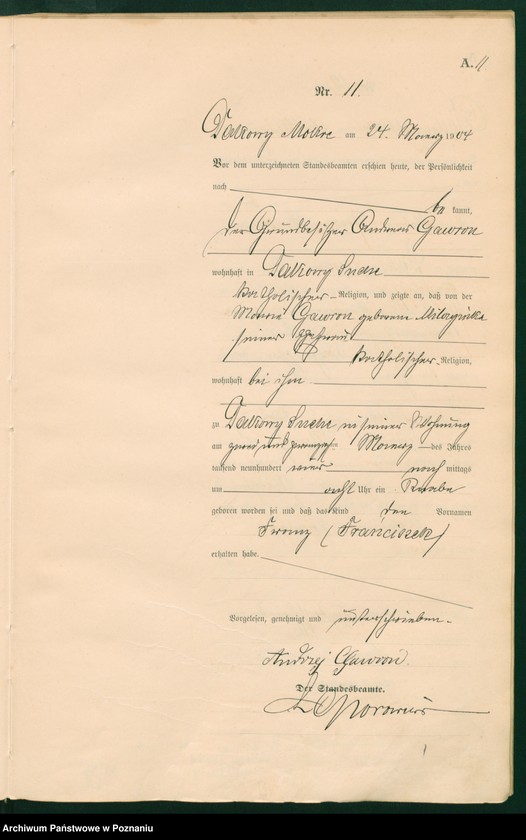 A. 11
Nr. 11.
Dalkowy Mokre am 24. Maerz 1904
Vor dem unterzeichneten Standesbeamten erschien heute, der Persönlichkeit
nach be kannt,
der Grundbesitzer Andreas Gawron
wohnhaft in Suche
katholischer Religion, und zeigte an, daß von der
Maria Gawron geborene
seiner Ehefrau
katholischer Religion,
wohnhaft bei ihm
zu Suche in seiner Wohnung
am zwei und zwanzigsten Maerz des Jahres
tausend neunhundert vier nach mittags
um acht Uhr ein Knabe
geboren worden sei und daß das Kind den Vornamen
Franz (Franciszek)
erhalten habe.
Vorgelesen, genehmigt und unterschrieben.
Andrzej Gawron
Der Standesbeamte.
Archiwum Państwowe w Poznaniu